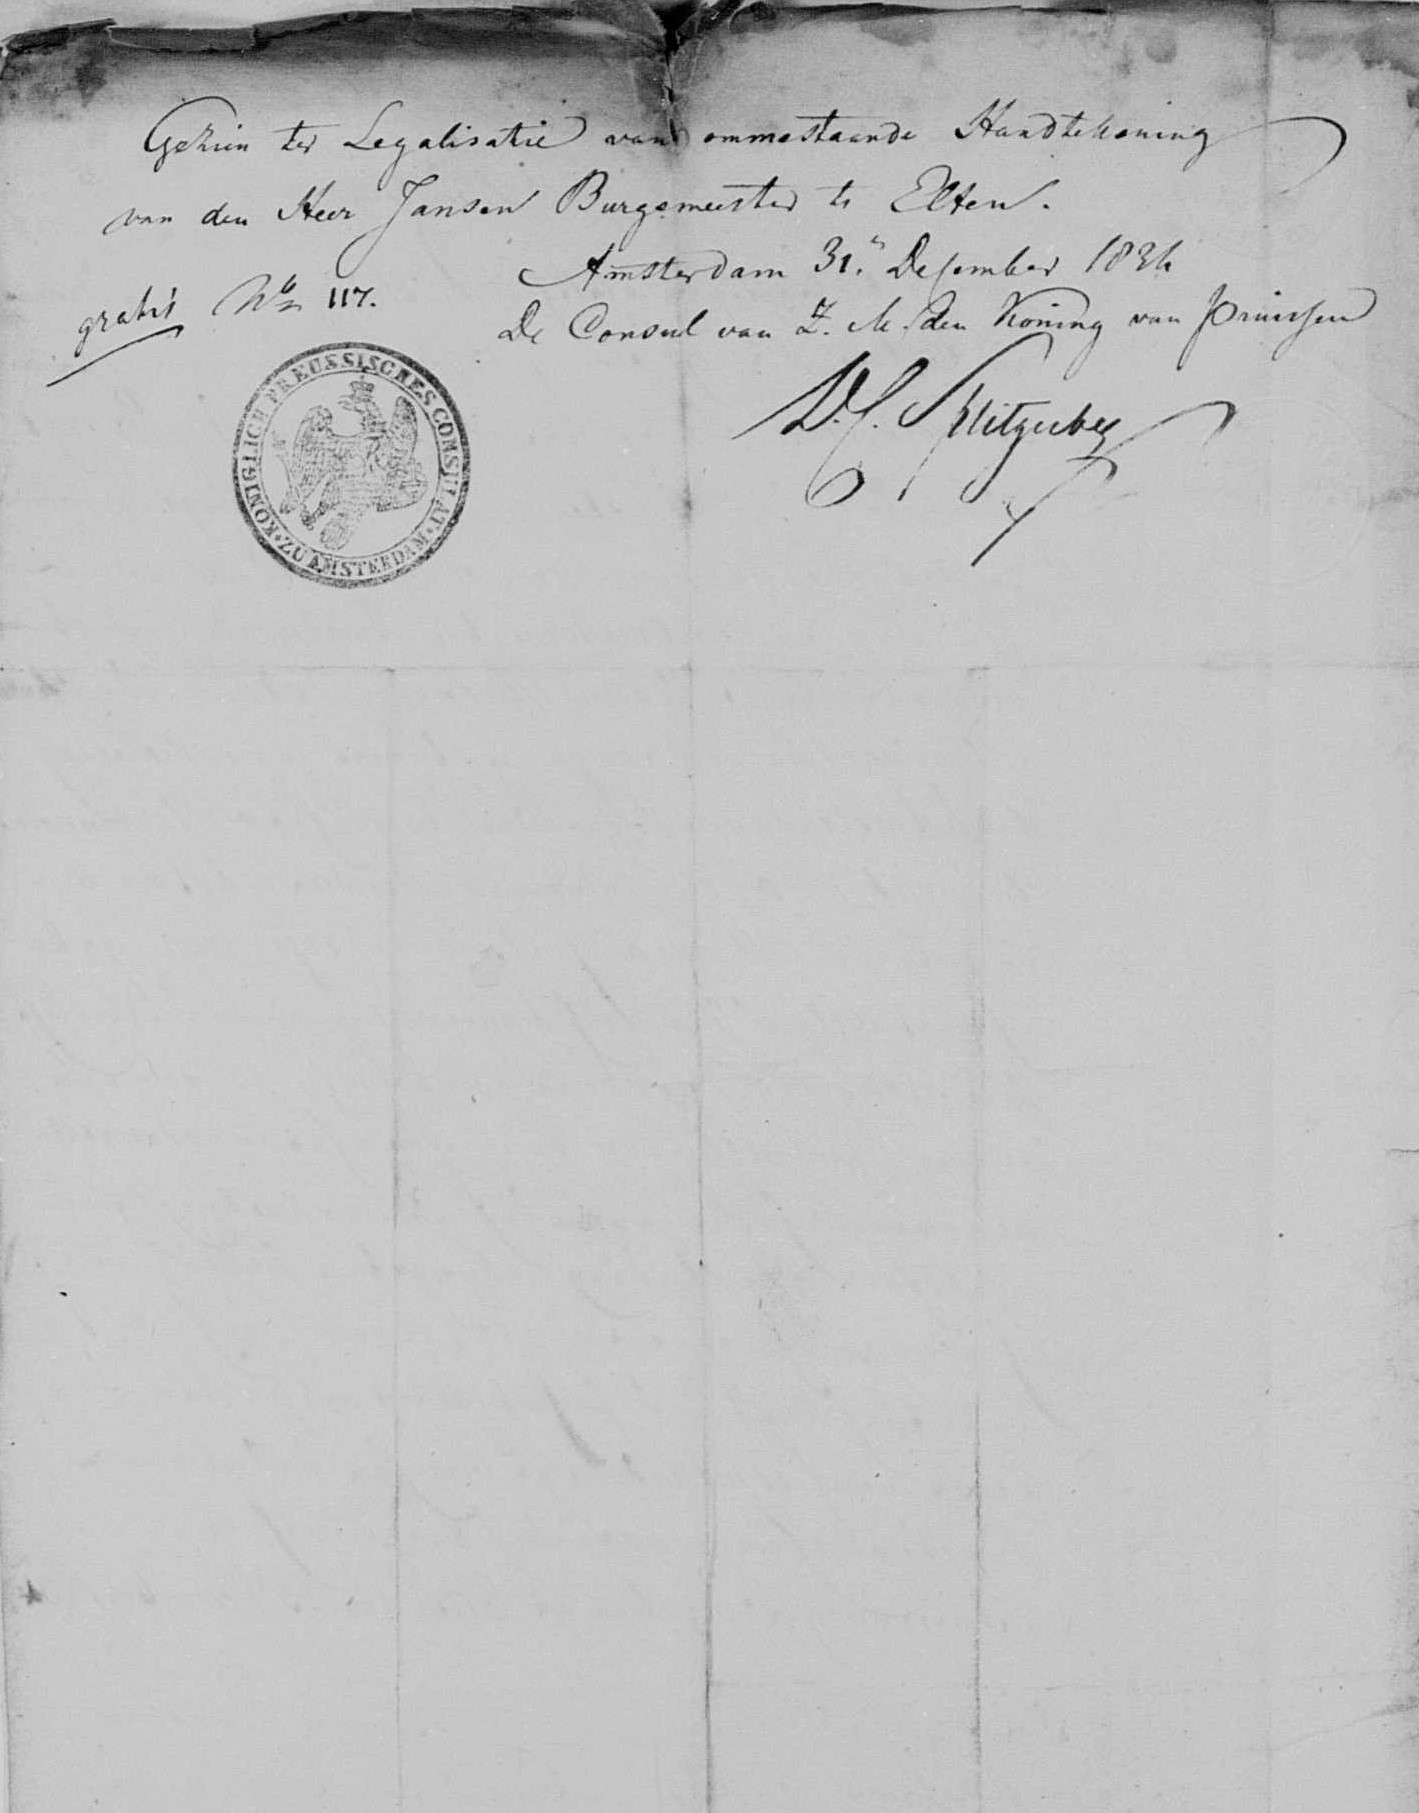 Gezien ter Legalisatie van ommestaande Handtekening
van den Heer Jansen Burgemeester te Elten.
Amsterdam 31." December
gratis No 117.
De Consul van Z. M. den Koning van Pruissen
KÖNIGLICH PREUSSISCHES CONSULAT
ZU AMSTERDAM